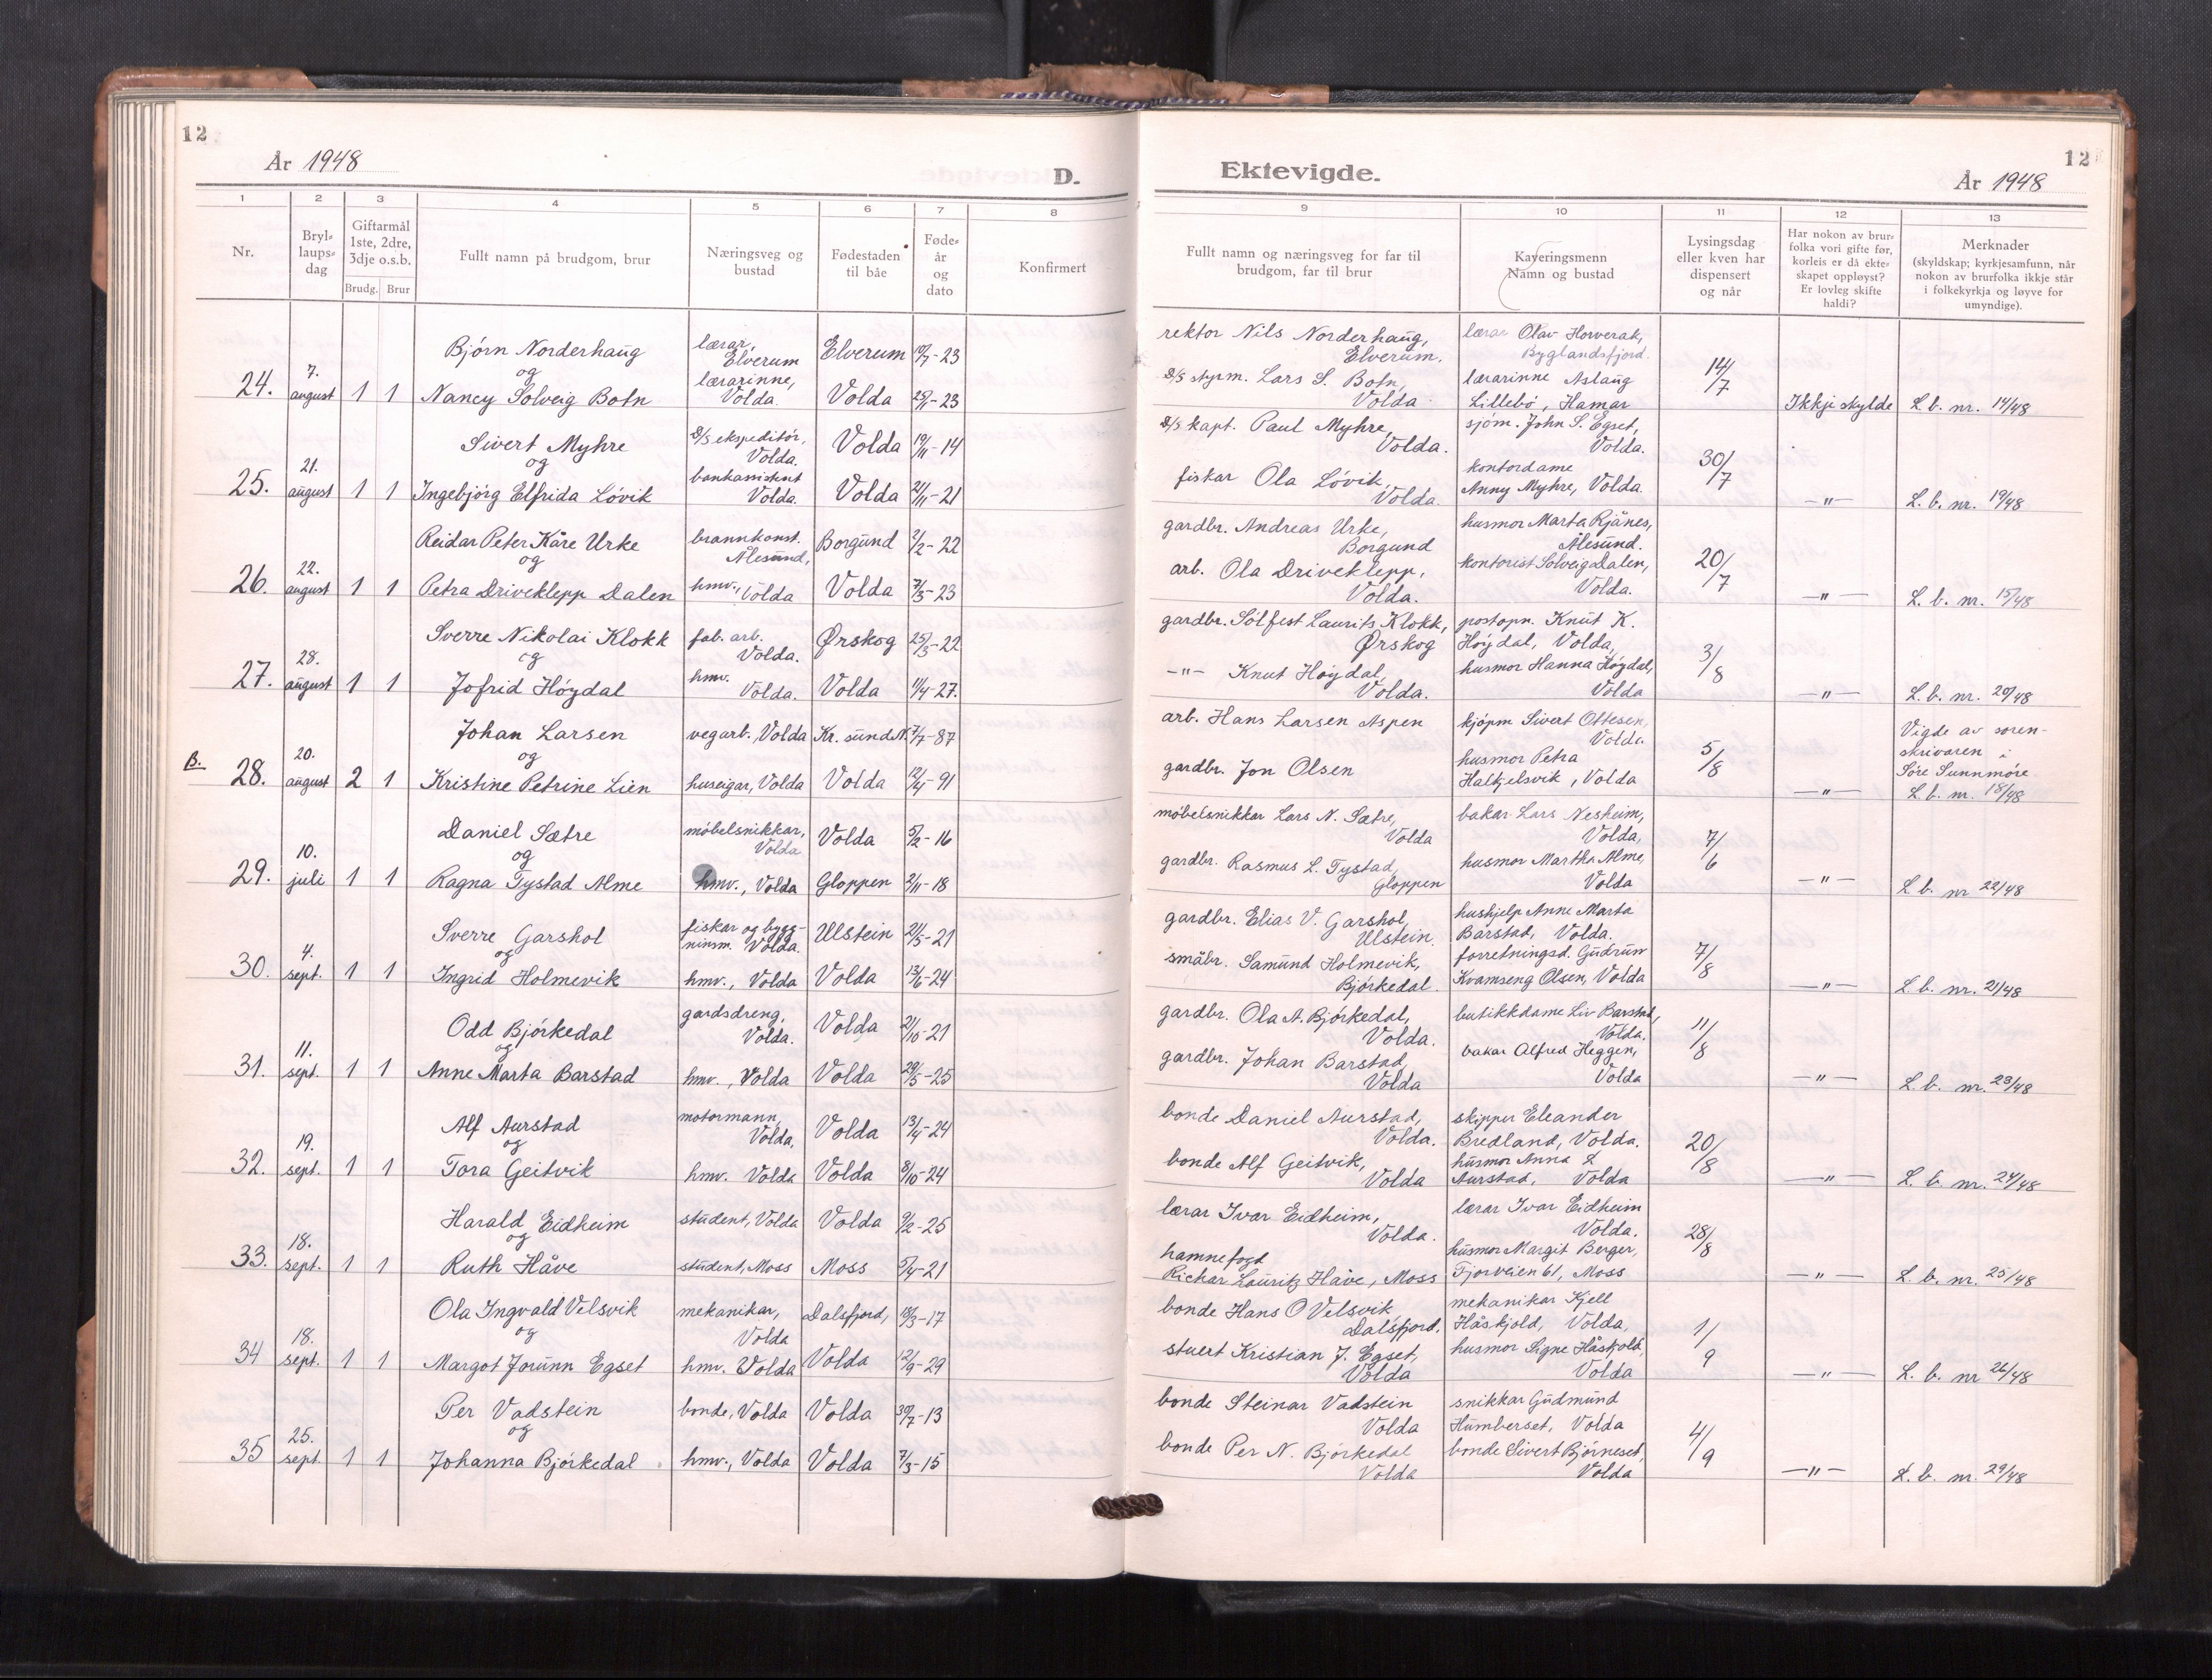 12
År 1948
D.
Ektevigde.
År 1948
12
1 2 3 4 5 6 7 8 9 10 11 12 13
Nr.
Bryl-
laups-
dag
Giftarmål
1ste, 2dre,
3dje o.s.b.
Brudg. Brur
Fullt namn på brudgom, brur
Næringsveg og
bustad
Fødestaden
til båe
Føde-
år
og
dato
Konfirmert
Fullt namn og næringsveg for far til
brudgom, far til brur
Kaveringsmenn
Namn og bustad
Lysingsdag
eller kven har
dispensert
og når
Har nokon av brur-
folka vori gifte før,
korleis er då ekte-
skapet oppløyst?
Er lovleg skifte
haldi?
Merknader
(skyldskap; kyrkjesamfunn, når
nokon av brurfolka ikkje står
i folkekyrkja og løyve for
umyndige).
24. 7. august 1 1
Bjørn Norderhaug lærar, Elverum Elverum 10/7-23
og
Nancy Solveig Botn lærarinne, Volda. Volda 25/11-23
rektor Nils Norderhaug, Elverum.
D/S styrm. Lars S. Botn, Volda
lærar Olav Horverak, Byglandsfjord.
lærarinne Aslaug Lillebø, Hamar
14/7 Ikkje skylde L. b. nr. 14/48
25. 21. august 1 1
Sivert Myhre D/S ekspeditør, Volda. Volda 19/11-14
og
Ingebjørg Elfrida Løvik bankassistent Volda. Volda 21/11-21
D/S kapt. Paul Myhre, Volda.
fiskar Ola Løvik, Volda.
sjøm. John S. Egset, Volda.
kontordame Anny Myhre, Volda.
30/7 -"- L. b. nr. 19/48
26. 22. august 1 1
Reidar Peter Kåre Urke brannkonst. Ålesund, Borgund 2/2-22
og
Petra Driveklepp Dalen hmv., Volda Volda 7/3-23
gardbr. Andreas Urke, Borgund
arb. Ola Driveklepp, Volda.
husmor Marta Rjånes, Ålesund.
kontorist Solveig Dalen, Volda.
20/7 -"- L. b. nr. 15/48
27. 28. august 1 1
Sverre Nikolai Klokk fab. arb. Volda. Ørskog 25/5-22
og
Jofrid Høydal hmv. Volda. Volda 11/4-27.
gardbr. Sølfest Laurits Klokk, Ørskog
-"- Knut Høydal, Volda.
postopn. Knut K. Høydal, Volda,
husmor Hanna Høydal, Volda
3/8 -"- L. b. nr. 20/48
B. 28. 20. august 2 1
Johan Larsen vegarb., Volda Kr. sund N. 7/7-87
og
Kristine Petrine Lien huseigar, Volda Volda 12/4-91
arb. Hans Larsen Aspen
gardbr. Jon Olsen
kjøpm Sivert Ottesen, Volda.
husmor Petra Halkjelsvik, Volda
5/8 -"-
Vigde av soren-
skrivaren i
Søre Sunnmøre
L. b. nr. 18/48
29. 10. juli 1 1
Daniel Sætre møbelsnikkar, Volda Volda 5/2-16
og
Ragna Tystad Alme hmv., Volda Gloppen 2/11-18
møbelsnikkar Lars N. Sætre, Volda
gardbr. Rasmus L. Tystad, Gloppen
bakar Lars Nesheim, Volda,
husmor Martha Alme, Volda
7/6 -"- L. b. nr 22/48
30. 4. sept. 1 1
Sverre Garshol fiskar og bygg-
ningsm. Volda. Ulstein 21/5-21
og
Ingrid Holmevik hmv., Volda Volda 13/6-24
gardbr. Elias V. Garshol, Ulstein.
småbr. Samund Holmevik, Bjørkedal.
hushjelp Anne Marta Barstad, Volda.
forretningsd. Gudrun Kvamseng Olsen, Volda
7/8 -"- L. b. nr. 21/48
31. 11. sept. 1 1
Odd Bjørkedal gardsdreng, Volda. Volda 21/10-21
og
Anne Marta Barstad hmv., Volda Volda 29/5-25
gardbr. Ola A. Bjørkedal, Volda.
gardbr. Johan Barstad Volda
butikkdame Liv Barstad, Volda.
bakar Alfred Heggen, Volda
11/8 -"- L. b. nr. 23/48
32. 19. sept. 1 1
Alf Aurstad motormann, Volda, Volda 13/4-24
og
Tora Geitvik hmv. Volda Volda 8/10-24
bonde Daniel Aurstad, Volda.
bonde Alf Geitvik, Volda
skipper Eleander Bredland, Volda.
husmor Anna Aurstad, Volda
20/8 -"- L. b. nr. 24/48
33. 18. sept. 1 1
Harald Eidheim student, Volda Volda 9/2-25
og
Ruth Håve student, Moss Moss 5/4-21
lærar Ivar Eidheim, Volda.
hamnefogd Richar Lauritz Håve, Moss
lærar Ivar Eidheim Volda.
husmor Margit Berger, Fjorveien 61, Moss
28/8 -"- L. b. nr. 25/48
34 18. sept. 1 1
Ola Ingvald Velsvik mekanikar, Volda Dalsfjord, 18/3-17
og
Margot Jorunn Egset hmv. Volda Volda 12/9-29
bonde Hans O Velsvik Dalsfjord.
stuert Kristian J. Egset, Volda
mekanikar Kjell Håskjold, Volda,
husmor Signe Håskjold, Volda
1/9 -"- L. b. nr 26/48
35 25. sept. 1 1
Per Vadstein bonde, Volda Volda 30/7-13
og
Johanna Bjørkedal hmv., Volda Volda 7/3-15
bonde Steinar Vadstein Volda
bonde Per N. Bjørkedal Volda
snikkar Gudmund Humberset, Volda
bonde Sivert Bjørneset, Volda
4/9 -"- L. b. nr. 29/48